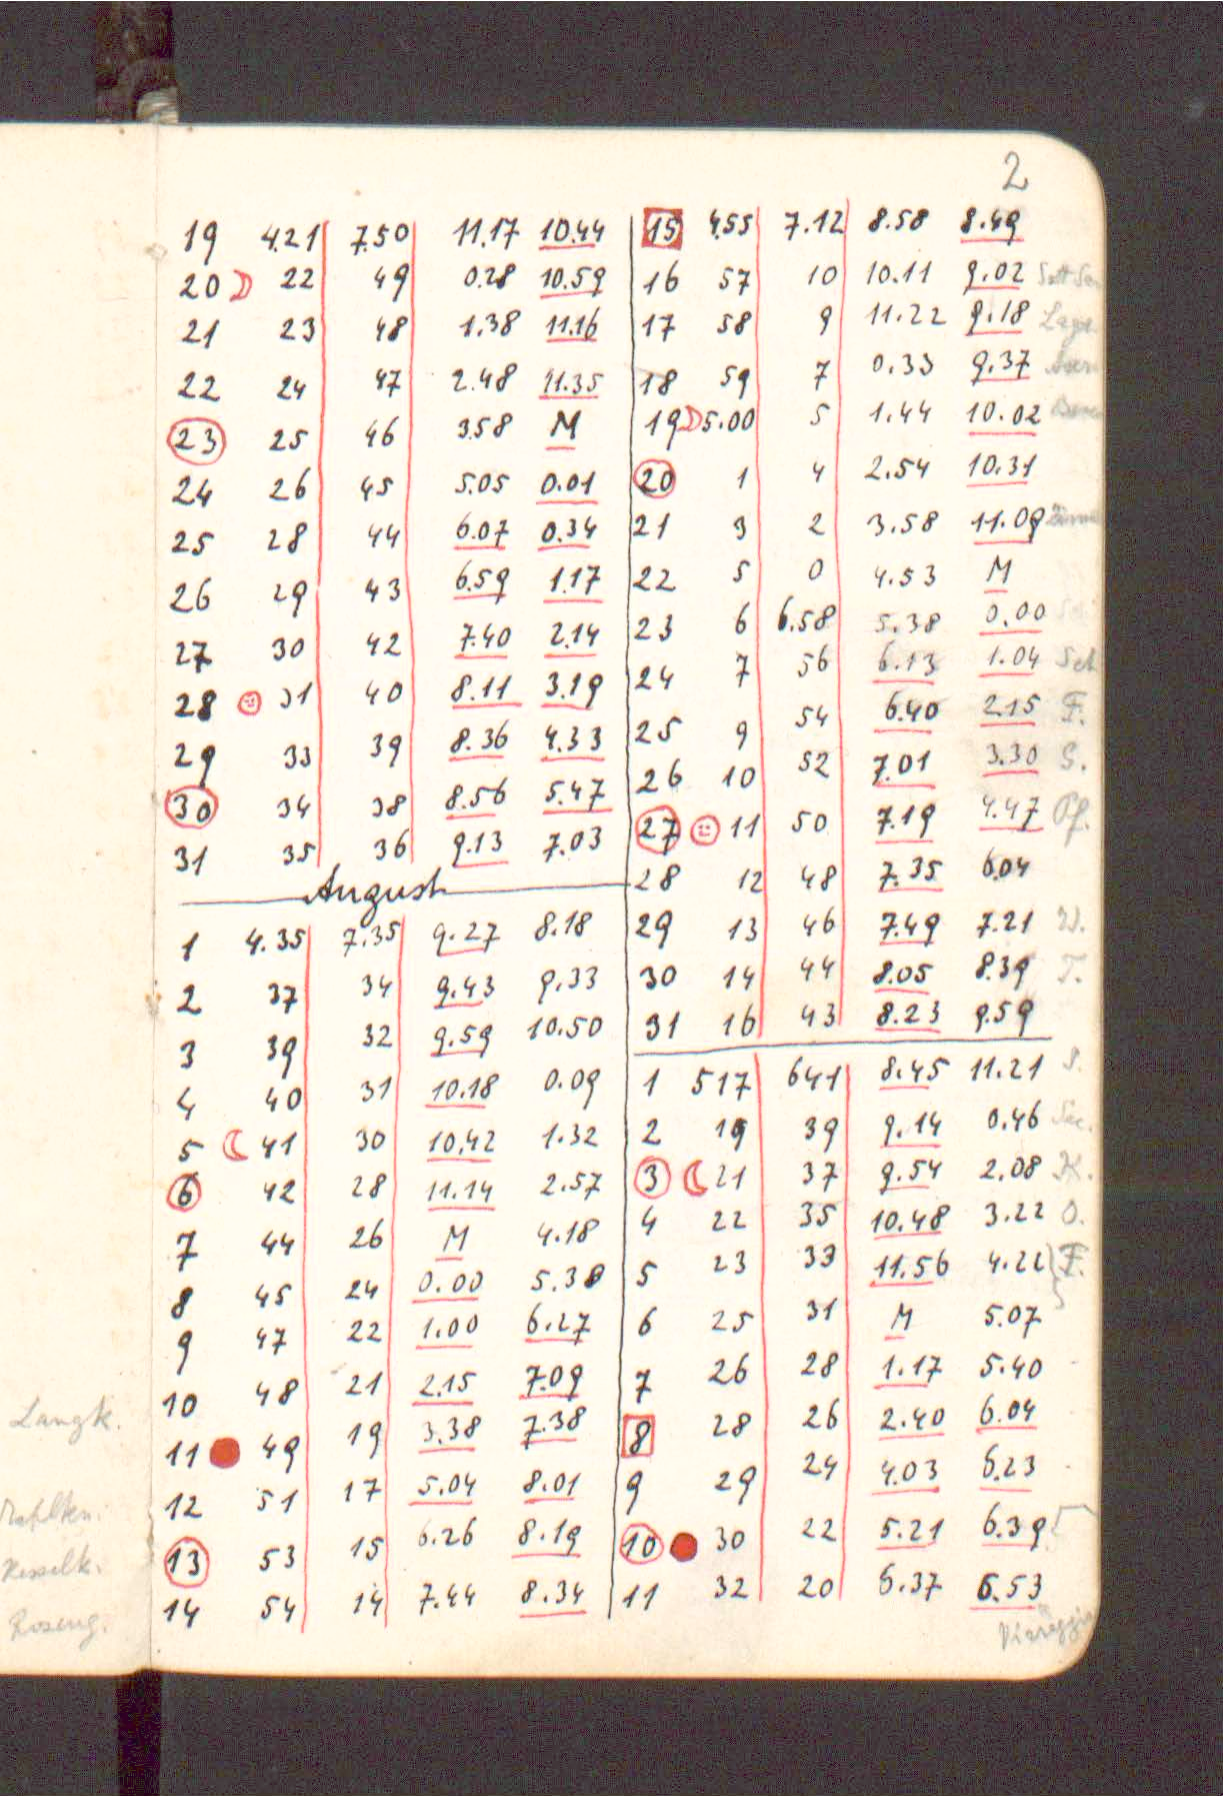 2
19 4.21 7.50 11.17 10.44
20 22 49 0.28 10.59
21 23 48 1.38 11.16
22 24 47 2.48 11.35
23 25 46 3.58 M
24 26 45 5.05 0.01
25 28 44 6.07 0.34
26 29 43 6.59 1.17
27 30 42 7.40 2.14
28 31 40 8.11 3.19
29 33 39 8.36 4.33
30 34 38 8.56 5.47
31 35 36 9.13 7.03
August
1 4.35 7.35 9.27 8.18
2 37 34 9.43 9.33
3 39 32 9.59 10.50
4 40 31 10.18 0.09
5 41 30 10.42 1.32
6 42 28 11.14 2.57
7 44 26 M 4.18
8 45 24 0.00 5.38
9 47 22 1.00 6.27
10 48 21 2.15 7.09
11 49 19 3.38 7.38
12 51 17 5.04 8.01
13 53 15 6.26 8.19
14 54 14 7.44 8.34
15 4.55 7.12 8.58 8.49
16 57 10 10.11 9.02
17 58 9 11.22 9.18
18 59 7 0.33 9.37
19 5.00 5 1.44 10.02
20 1 4 2.54 10.31
21 3 2 3.58 11.09
22 5 0 4.53 M
23 6 6.58 5.38 0.00
24 7 56 6.13 1.04 Sch
25 9 54 6.40 2.15 F.
26 10 52 7.01 3.30 S.
27 11 50 7.19 4.47 Pf.
28 12 48 7.35 6.04
29 13 46 7.49 7.21
30 14 44 8.05 8.39 T.
31 16 43 8.23 9.59
1 517 641 8.45 11.21 S.
2 19 39 9.14 0.46
3 21 37 9.54 2.08 K.
4 22 35 10.48 3.22 O.
5 23 33 11.56 4.22 F.
6 25 31 M 5.07
7 26 28 1.17 5.40
8 28 26 2.40 6.04
9 29 24 4.03 6.23
10 30 22 5.21 6.39
11 32 20 6.37 6.53
Viareggio
Langk.
Kesselk.
Roseng.